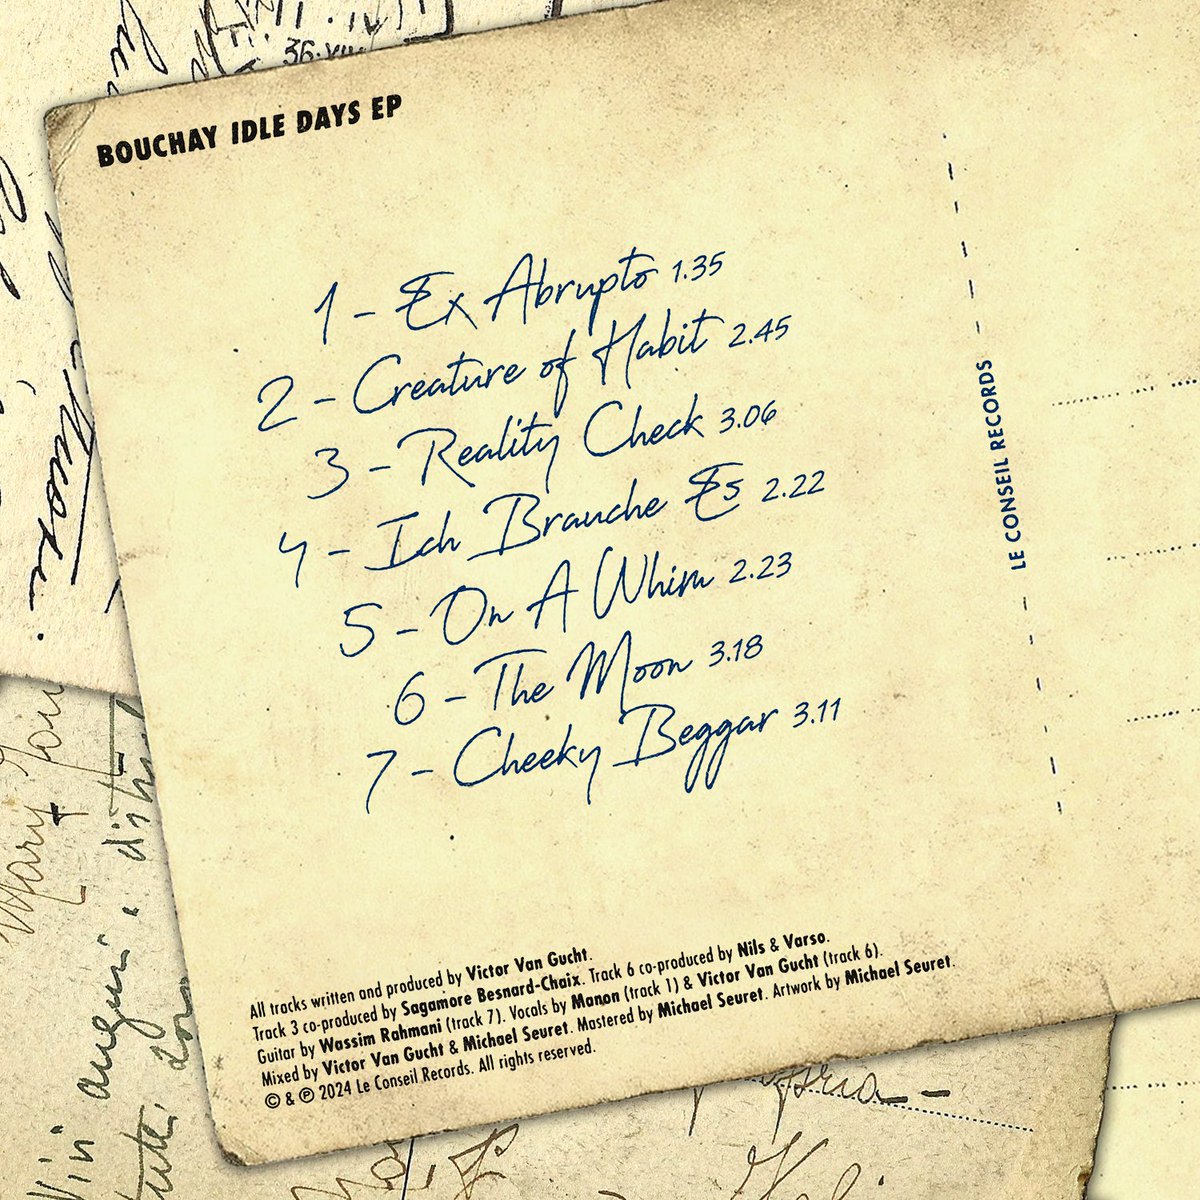 36.VIII
BOUCHAY IDLE DAYS EP
1 - Ex Abrupto 1.35
2 - Creature of Habit 2.45
3 - Reality Check 3.06
4 - Ich Brauche Es 2.22
5 - On A Whim 2.23
6 - The Moon 3.18
7 - Cheeky Beggar 3.11
LE CONSEIL RECORDS
All tracks written and produced by Victor Van Gucht.
Track 3 co-produced by Sagamore Besnard-Chaix. Track 6 co-produced by Nils & Varso.
Guitar by Wassim Rahmani (track 7). Vocals by Manon (track 1) & Victor Van Gucht (track 6).
Mixed by Victor Van Gucht & Michael Seuret. Mastered by Michael Seuret. Artwork by Michael Seuret.
© & ℗ 2024 Le Conseil Records. All rights reserved.
Mary